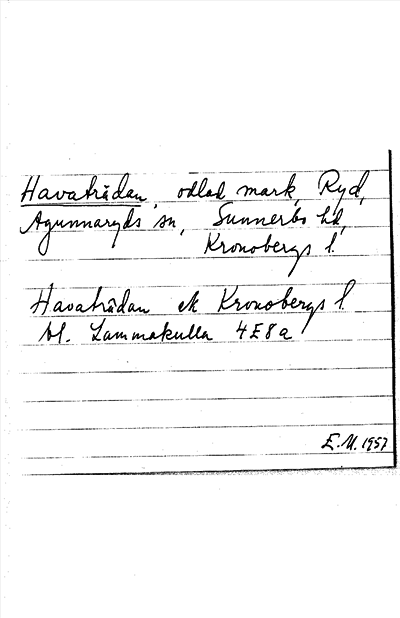 Havaträdan, odlad mark, Ryd,
Agunnaryds sn, Sunnerbo hd,
Kronobergs l.
Havaträdan ek Kronobergs l
bl. Lammakulla 4E8a
E.M. 1957